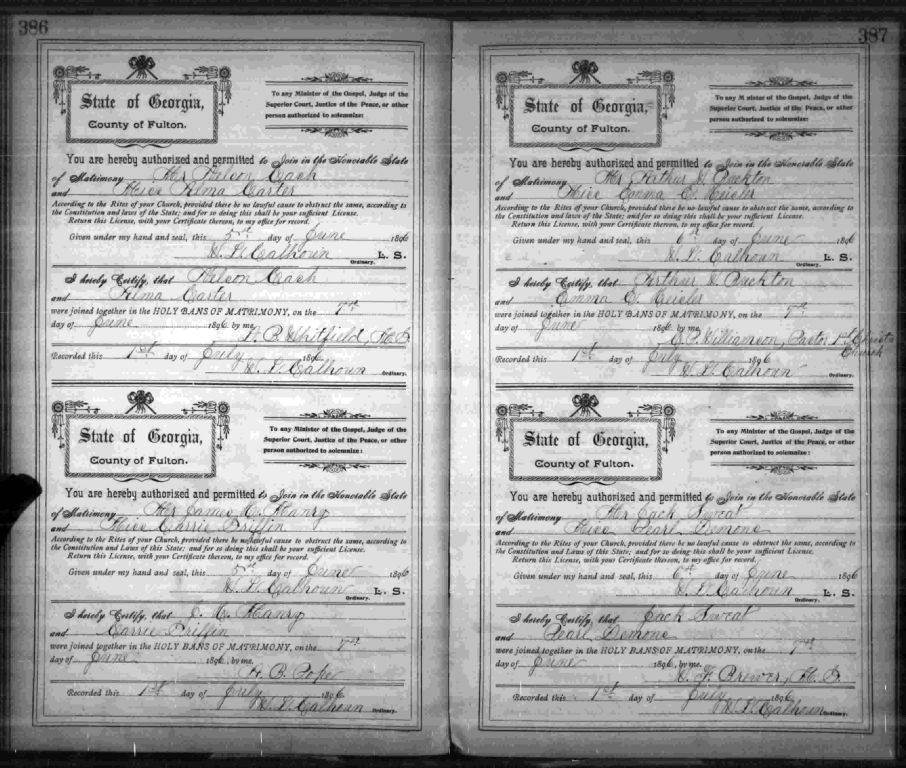 386
State of Georgia,
County of Fulton.
To any Minister of the Gospel, Judge of the
Superior Court, Justice of the Peace, or other
person authorized to solemnize:
You are hereby authorized and permitted to Join in the Honorable State
of Matrimony Mr
and Miss Carter
According to the Rites of your Church, provided there be no lawful cause to obstruct the same, according to the
Constitution and laws of the State; and for so doing this shall be your sufficient License.
Return this License, with your Certificate thereon, to my office for record.
Given under my hand and seal, this 5th day of June 1896
Calhoun L. S.
Ordinary.
I hereby Certify, that
and Carter
were joined together in the HOLY BANS OF MATRIMONY, on the 7th
day of June 1896 by me,
Whitfield,
Recorded this 1st day of July 1896
Calhoun Ordinary.
State of Georgia,
County of Fulton.
To any Minister of the Gospel, Judge of the
Superior Court, Justice of the Peace, or other
person authorized to solemnize:
You are hereby authorized and permitted to Join in the Honorable State
of Matrimony Mr James Manry
and Miss Carrie Griffin
According to the Rites of your Church, provided there be no lawful cause to obstruct the same, according to the
Constitution and Laws of this State; and for so doing this shall be your sufficient License.
Return this License, with your Certificate thereon, to my office for record.
Given under my hand and seal, this 5th day of June 1896
Calhoun L. S.
Ordinary.
I hereby Certify, that J. Manry
and Carrie Griffin
were joined together in the HOLY BANS OF MATRIMONY, on the 7th
day of June 1896, by me,
B. Pope
Recorded this 1st day of July 1896
Calhoun Ordinary.
387
State of Georgia,
County of Fulton.
To any Minister of the Gospel, Judge of the
Superior Court, Justice of the Peace, or other
person authorized to solemnize:
You are hereby authorized and permitted to Join in the Honorable State
of Matrimony Mr Arthur
and Miss Emma
According to the Rites of your Church, provided there be no lawful cause to obstruct the same, according to the
Constitution and laws of the State; and for so doing this shall be your sufficient License.
Return this License, with your Certificate thereon, to my office for record.
Given under my hand and seal, this 6th day of June 1896
Calhoun L. S.
Ordinary.
I hereby Certify, that Arthur
and Emma
were joined together in the HOLY BANS OF MATRIMONY, on the 7th
day of June 1896 by me,
Williamson, Pastor 1st Christn
Church
Recorded this 1st day of July 1896
Calhoun Ordinary.
State of Georgia,
County of Fulton.
To any Minister of the Gospel, Judge of the
Superior Court, Justice of the Peace, or other
person authorized to solemnize:
You are hereby authorized and permitted to Join in the Honorable State
of Matrimony Mr Jack Sweat
and Miss Pearl Demone
According to the Rites of your Church, provided there be no lawful cause to obstruct the same, according to the
Constitution and Laws of this State; and for so doing this shall be your sufficient License.
Return this License, with your Certificate thereon, to my office for record.
Given under my hand and seal, this 6th day of June 1896
Calhoun L. S.
Ordinary.
I hereby Certify, that Jack Sweat
and Pearl Demone
were joined together in the HOLY BANS OF MATRIMONY, on the 7th
day of June 1896, by me,
Brewer,
Recorded this 1st day of July 1896
Calhoun Ordinary.